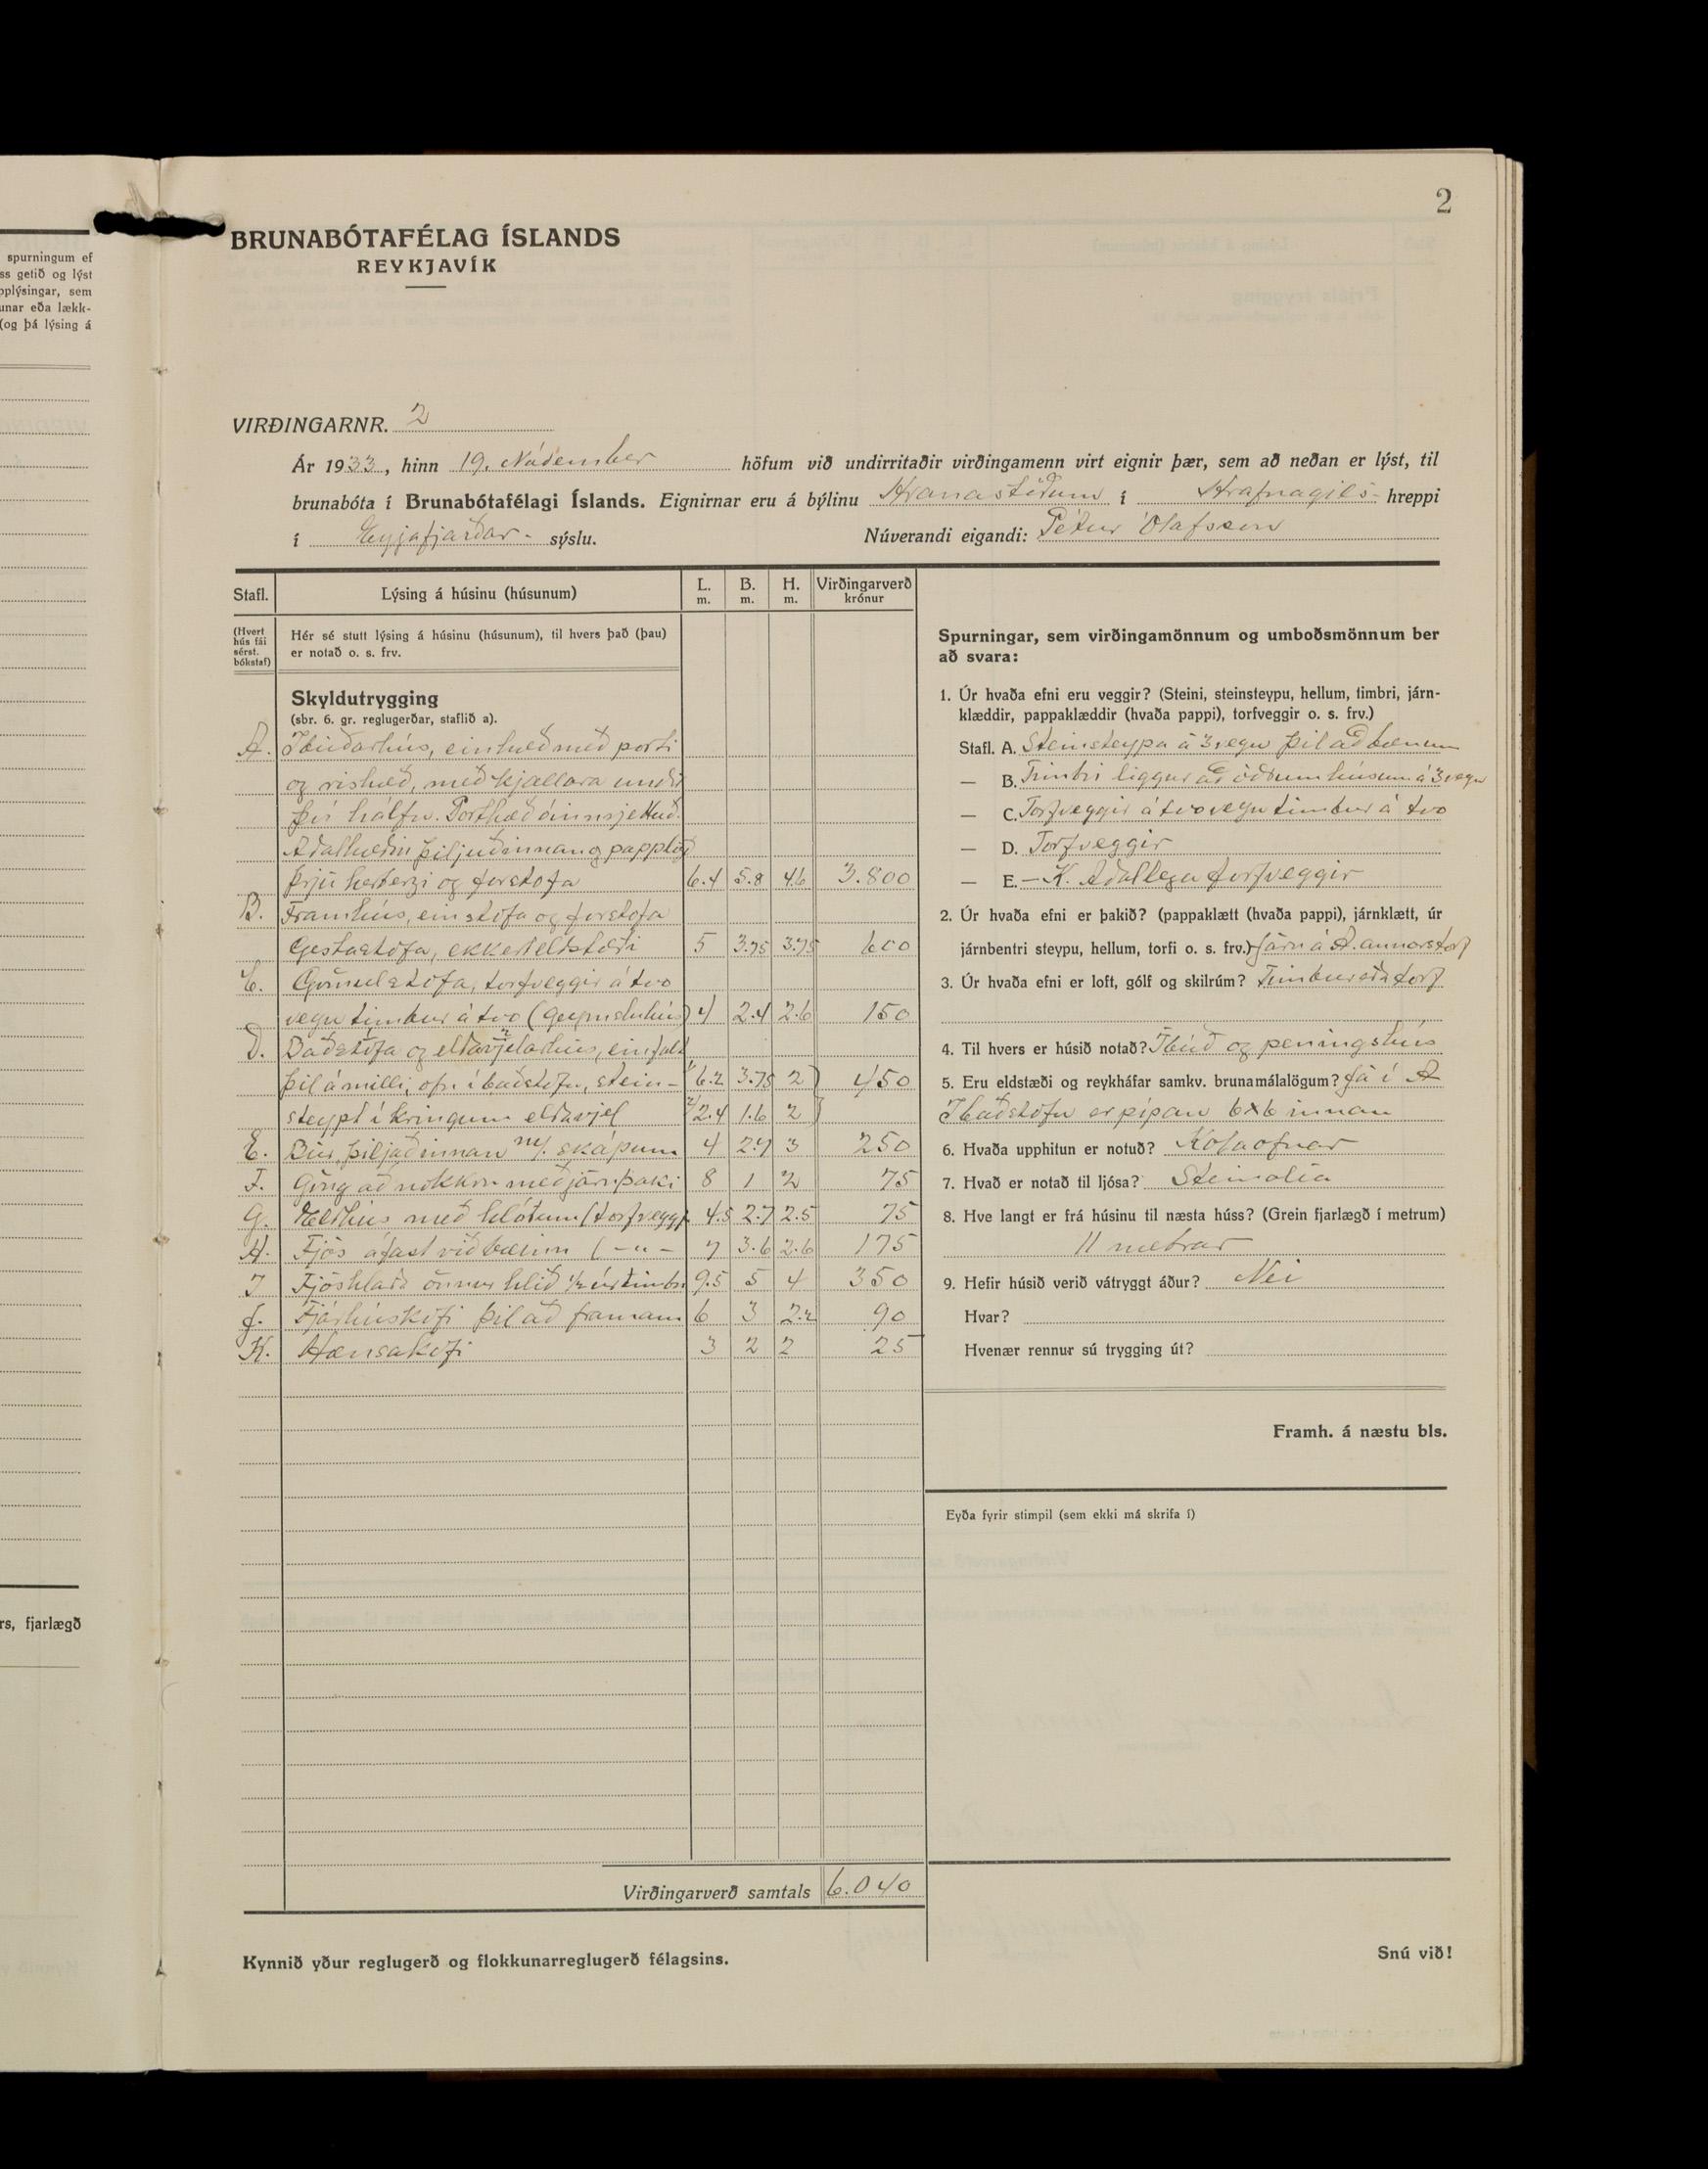 spurningum ef
ss getið og lýst
pplýsingar, sem
unar eða lækk-
(og þá lýsing á
rs, fjarlægð
2
BRUNABÓTAFÉLAG ÍSLANDS
REYKJAVÍK
VIRÐINGARNR. 2
Ár 1933, hinn 19. Nóvember höfum við undirritaðir virðingamenn virt eignir þær, sem að neðan er lýst, til
brunabóta í Brunabótafélagi Íslands. Eignirnar eru á býlinu Hranastöðum í Hrafnagils- hreppi
í Eyjafjarðar- sýslu. Núverandi eigandi: Pétur Ólafsson
Stafl. Lýsing á húsinu (húsunum) L. m. B. m. H. m. Virðingarverð krónur
(Hvert hús fái sérst. bókstaf)
Hér sé stutt lýsing á húsinu (húsunum), til hvers það (þau)
er notað o. s. frv.
Skyldutrygging
(sbr. 6. gr. reglugerðar, staflið a).
A. Íbúðarhús, einhæð með porti
og rishæð, með kjallara undir
því hálfu. Porthæð óinnrjettuð.
Aðalhæðin þiljuð innan og papplögð
Þrjú herbergi og forstofa 6.4 5.8 4.6 3.800
B. Framhús, ein stofa og forstofa
Gestastofa, ekkert eldstæði 5 3.75 3.75 600
C. Gömul stofa, torfveggir á tvo
vegu timbur á tvo (geymsluhús) 4 2.4 2.6 150
D. Baðstofa og eldavjelarhús, einfalt
þil á milli, ofn í baðstofu, stein- 1/ 6.2 3.75 2 450
steypt í kringum eldavjel 2/ 2.4 1.6 2
E. Búr þiljað innan m/. skápum 4 2.7 3 250
F. Göng að nokkru með járnþaki 8 1 2 75
G. Eldhús með hlóðum (torfvegg) 4.5 2.7 2.5 75
H. Fjós áfast við bæinn ( - " - 7 3.6 2.6 175
I Fjóshlaða önnur hlið 1/2 úr timbri 9.5 5 4 350
J. Fjárhúskofi þil að framan 6 3 2.2 90
K. Hænsakofi 3 2 2 25
Virðingarverð samtals 6.040
Kynnið yður reglugerð og flokkunarreglugerð félagsins.
Spurningar, sem virðingamönnum og umboðsmönnum ber
að svara:
1. Úr hvaða efni eru veggir? (Steini, steinsteypu, hellum, timbri, járn-
klæddir, pappaklæddir (hvaða pappi), torfveggir o. s. frv.)
Stafl. A. Steinsteypa á 3 vegu þil að bænum
— B. Timbri liggur að öðrum húsum á 3 vegu
— C. Torfveggir á tvo vegu timbur á tvo
— D. Torfveggir
— E. - K. Aðallega torfveggir
2. Úr hvaða efni er þakið? (pappaklætt (hvaða pappi), járnklætt, úr
járnbentri steypu, hellum, torfi o. s. frv.) Járn á A. annars torf
3. Úr hvaða efni er loft, gólf og skilrúm? Timbur eða torf
4. Til hvers er húsið notað? Íbúð og peningshús
5. Eru eldstæði og reykháfar samkv. brunamálalögum? Já í A
Í baðstofu er pípan 6x6 innan
6. Hvaða upphitun er notuð? Kolaofnar
7. Hvað er notað til ljósa? Steinolía
8. Hve langt er frá húsinu til næsta húss? (Grein fjarlægð í metrum)
11 metrar
9. Hefir húsið verið vátryggt áður? Nei
Hvar?
Hvenær rennur sú trygging út?
Framh. á næstu bls.
Eyða fyrir stimpil (sem ekki má skrifa í)
Snú við!